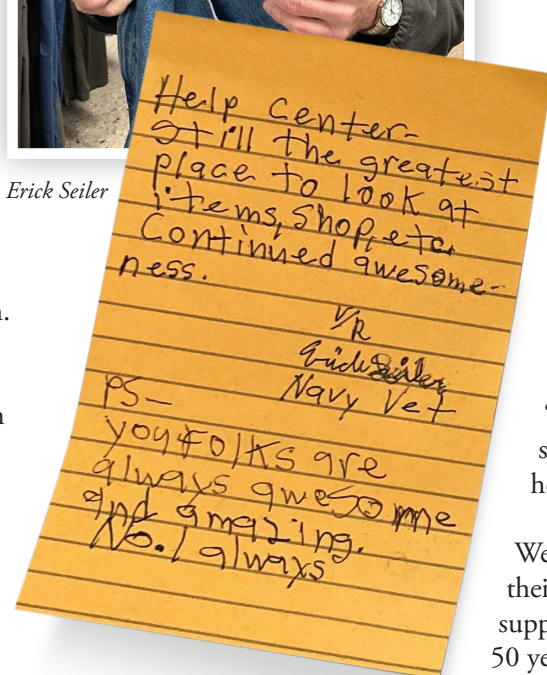 Erick Seiler
Help Center-
still the greatest
place to look at
items, shop, etc.
Continued awesome-
ness.
V/R
Erick Seiler
Navy Vet
PS-
you folks are
always awesome
and amazing.
No. 1 always
We
their
supp
50 ye